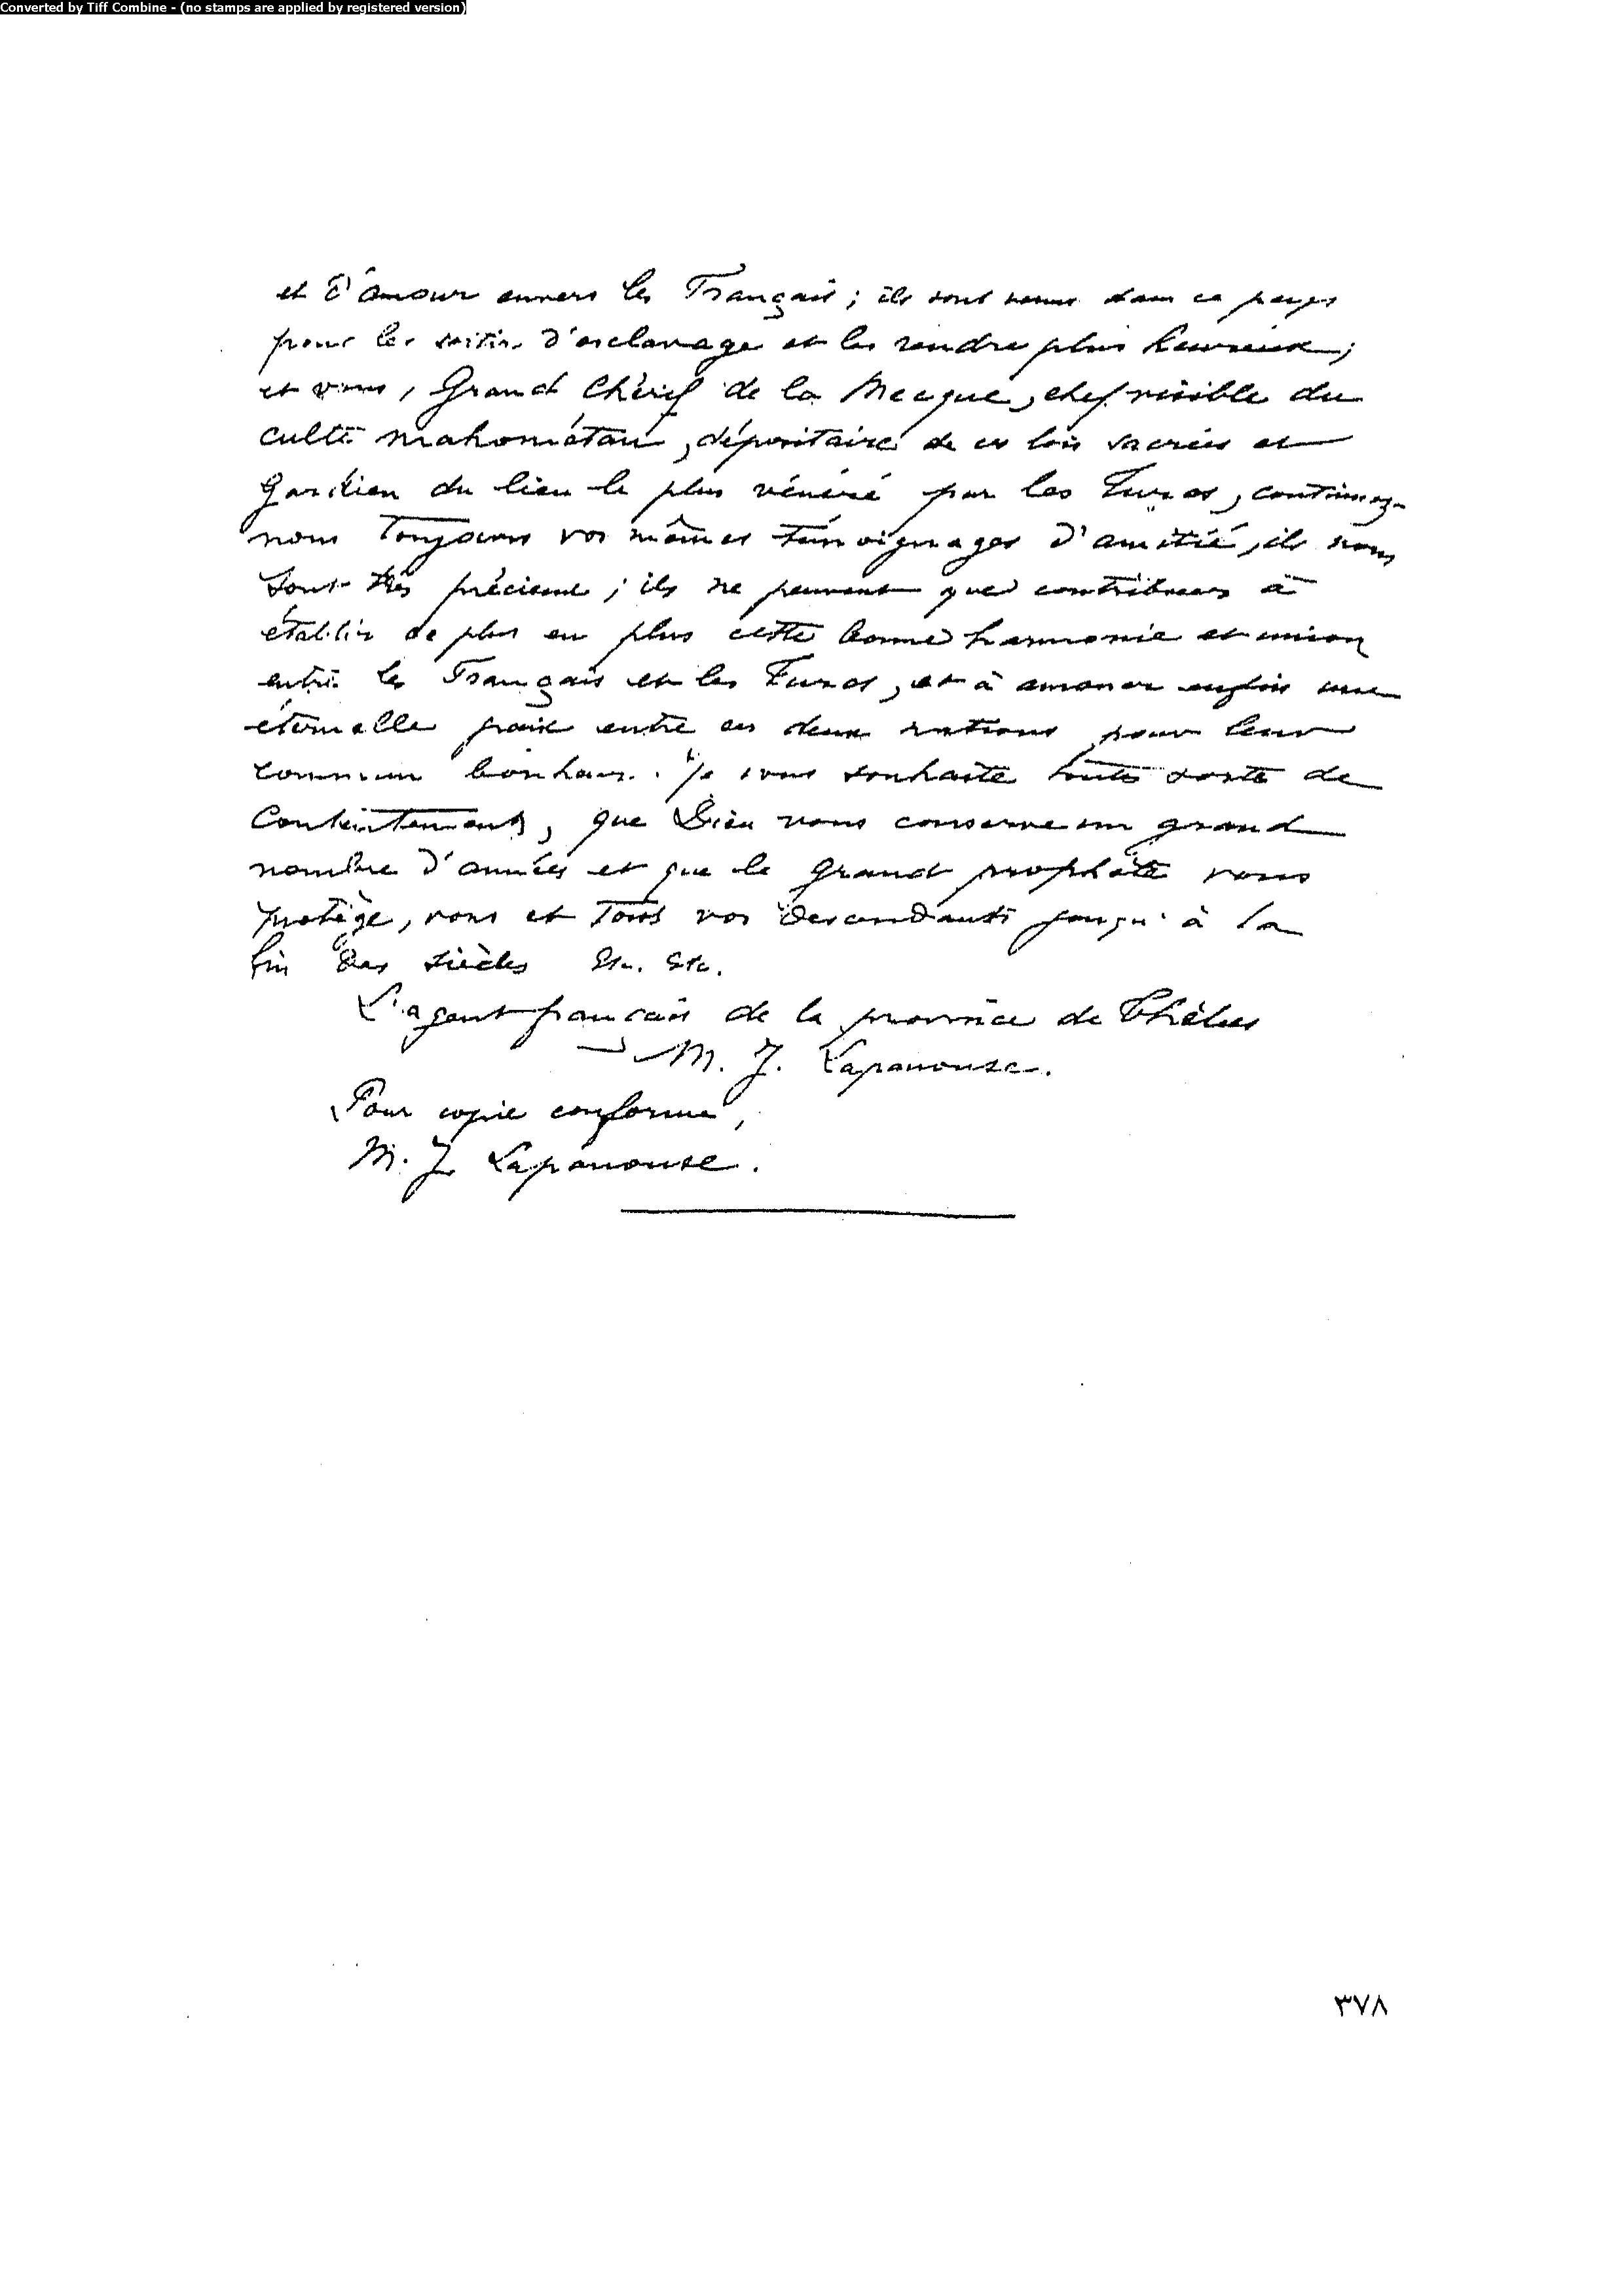 Converted by Tiff Combine - (no stamps are applied by registered version)
et d'amour envers les Français ; ils sont venus dans ce pays
pour les sortir d'esclavage et les rendre plus heureux ;
et vous, Grand Chérif de la Mecque, chef visible du
culte mahométan, dépositaire de ces lois sacrées et
Gardien du lieu le plus vénéré par les Turcs, continuez-
nous toujours vos mêmes témoignages d'amitié, ils nous
sont très précieux ; ils ne peuvent que contribuer à
établir de plus en plus cette bonne harmonie et union
entre les Français et les Turcs, et à amener enfin une
éternelle paix entre ces deux nations pour leur
commun bonheur. Je vous souhaite toute sorte de
Contentements, que Dieu vous conserve un grand
nombre d'années et que le grand prophète vous
protège, vous et tous vos descendants jusqu'à la
fin des siècles Etc. Etc.
L'agent français de la province de Thèbes
M. J. Lapanouse.
Pour copie conforme,
M. J. Lapanouse.
٣٧٨